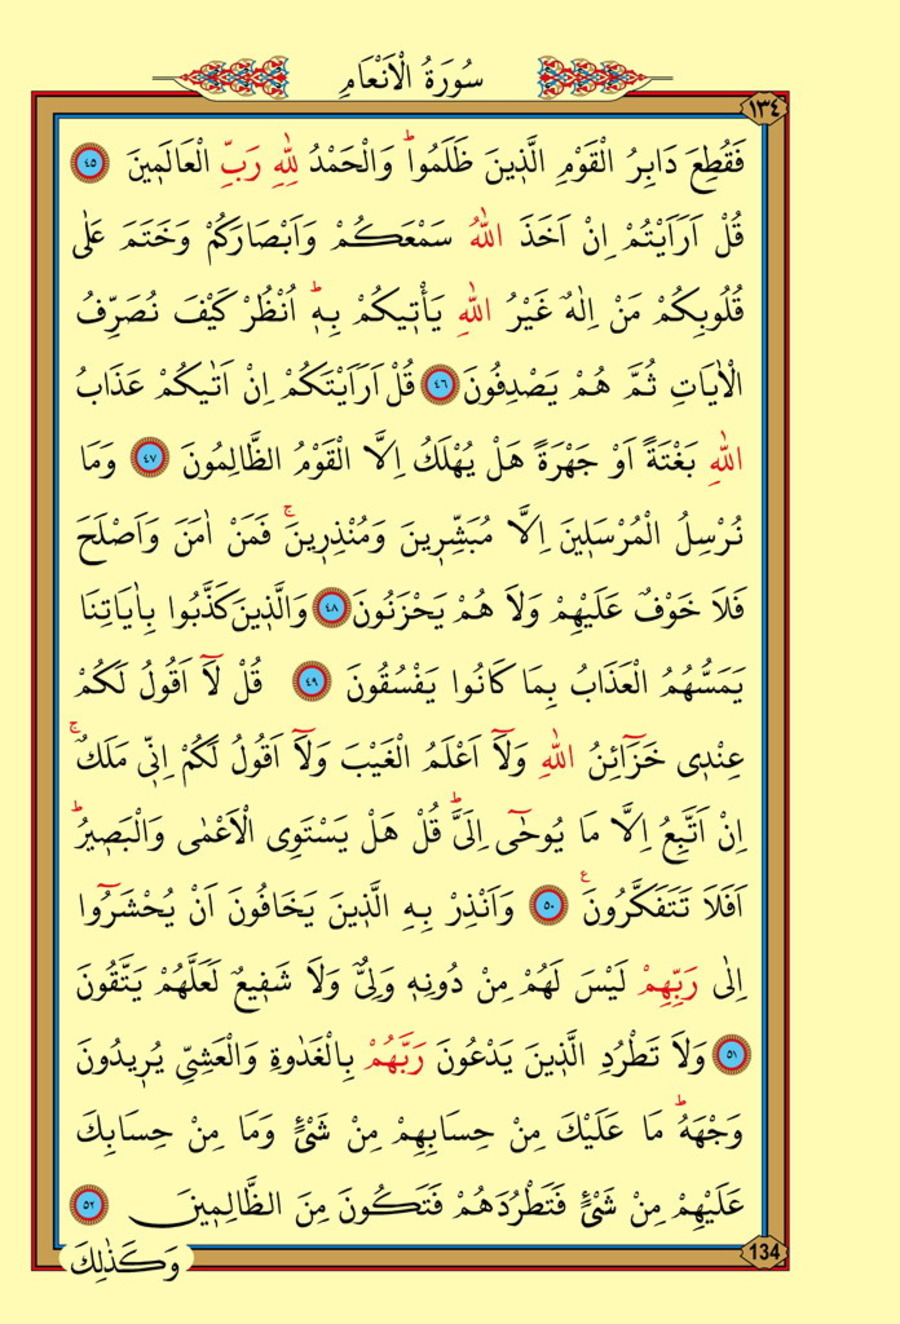 سُورَةُ الْاَنْعَامِ
١٣٤
فَقُطِعَ دَابِرُ الْقَوْمِ الَّذٖينَ ظَلَمُواؕ وَالْحَمْدُ لِلّٰهِ رَبِّ الْعَالَمٖينَ ٤٥
قُلْ اَرَاَيْتُمْ اِنْ اَخَذَ اللّٰهُ سَمْعَكُمْ وَاَبْصَارَكُمْ وَخَتَمَ عَلٰى
قُلُوبِكُمْ مَنْ اِلٰهٌ غَيْرُ اللّٰهِ يَأْتٖيكُمْ بِهٖؕ اُنْظُرْ كَيْفَ نُصَرِّفُ
الْاٰيَاتِ ثُمَّ هُمْ يَصْدِفُونَ ٤٦ قُلْ اَرَاَيْتَكُمْ اِنْ اَتٰيكُمْ عَذَابُ
اللّٰهِ بَغْتَةً اَوْ جَهْرَةً هَلْ يُهْلَكُ اِلَّا الْقَوْمُ الظَّالِمُونَ ٤٧ وَمَا
نُرْسِلُ الْمُرْسَلٖينَ اِلَّا مُبَشِّرٖينَ وَمُنْذِرٖينَۚ فَمَنْ اٰمَنَ وَاَصْلَحَ
فَلَا خَوْفٌ عَلَيْهِمْ وَلَا هُمْ يَحْزَنُونَ ٤٨ وَالَّذٖينَ كَذَّبُوا بِاٰيَاتِنَا
يَمَسُّهُمُ الْعَذَابُ بِمَا كَانُوا يَفْسُقُونَ ٤٩ قُلْ لَٓا اَقُولُ لَكُمْ
عِنْدٖى خَزَٓائِنُ اللّٰهِ وَلَٓا اَعْلَمُ الْغَيْبَ وَلَٓا اَقُولُ لَكُمْ اِنّٖى مَلَكٌۚ
اِنْ اَتَّبِعُ اِلَّا مَا يُوحٰٓى اِلَىَّؕ قُلْ هَلْ يَسْتَوِى الْاَعْمٰى وَالْبَصٖيرُؕ
اَفَلَا تَتَفَكَّرُونَࣖ ٥٠ وَاَنْذِرْ بِهِ الَّذٖينَ يَخَافُونَ اَنْ يُحْشَرُٓوا
اِلٰى رَبِّهِمْ لَيْسَ لَهُمْ مِنْ دُونِهٖ وَلِىٌّ وَلَا شَفٖيعٌ لَعَلَّهُمْ يَتَّقُونَ
٥١ وَلَا تَطْرُدِ الَّذٖينَ يَدْعُونَ رَبَّهُمْ بِالْغَدٰوةِ وَالْعَشِىِّ يُرٖيدُونَ
وَجْهَهُؕ مَا عَلَيْكَ مِنْ حِسَابِهِمْ مِنْ شَیْءٍ وَمَا مِنْ حِسَابِكَ
عَلَيْهِمْ مِنْ شَیْءٍ فَتَطْرُدَهُمْ فَتَكُونَ مِنَ الظَّالِمٖينَ ٥٢
134
وَكَذٰلِكَ